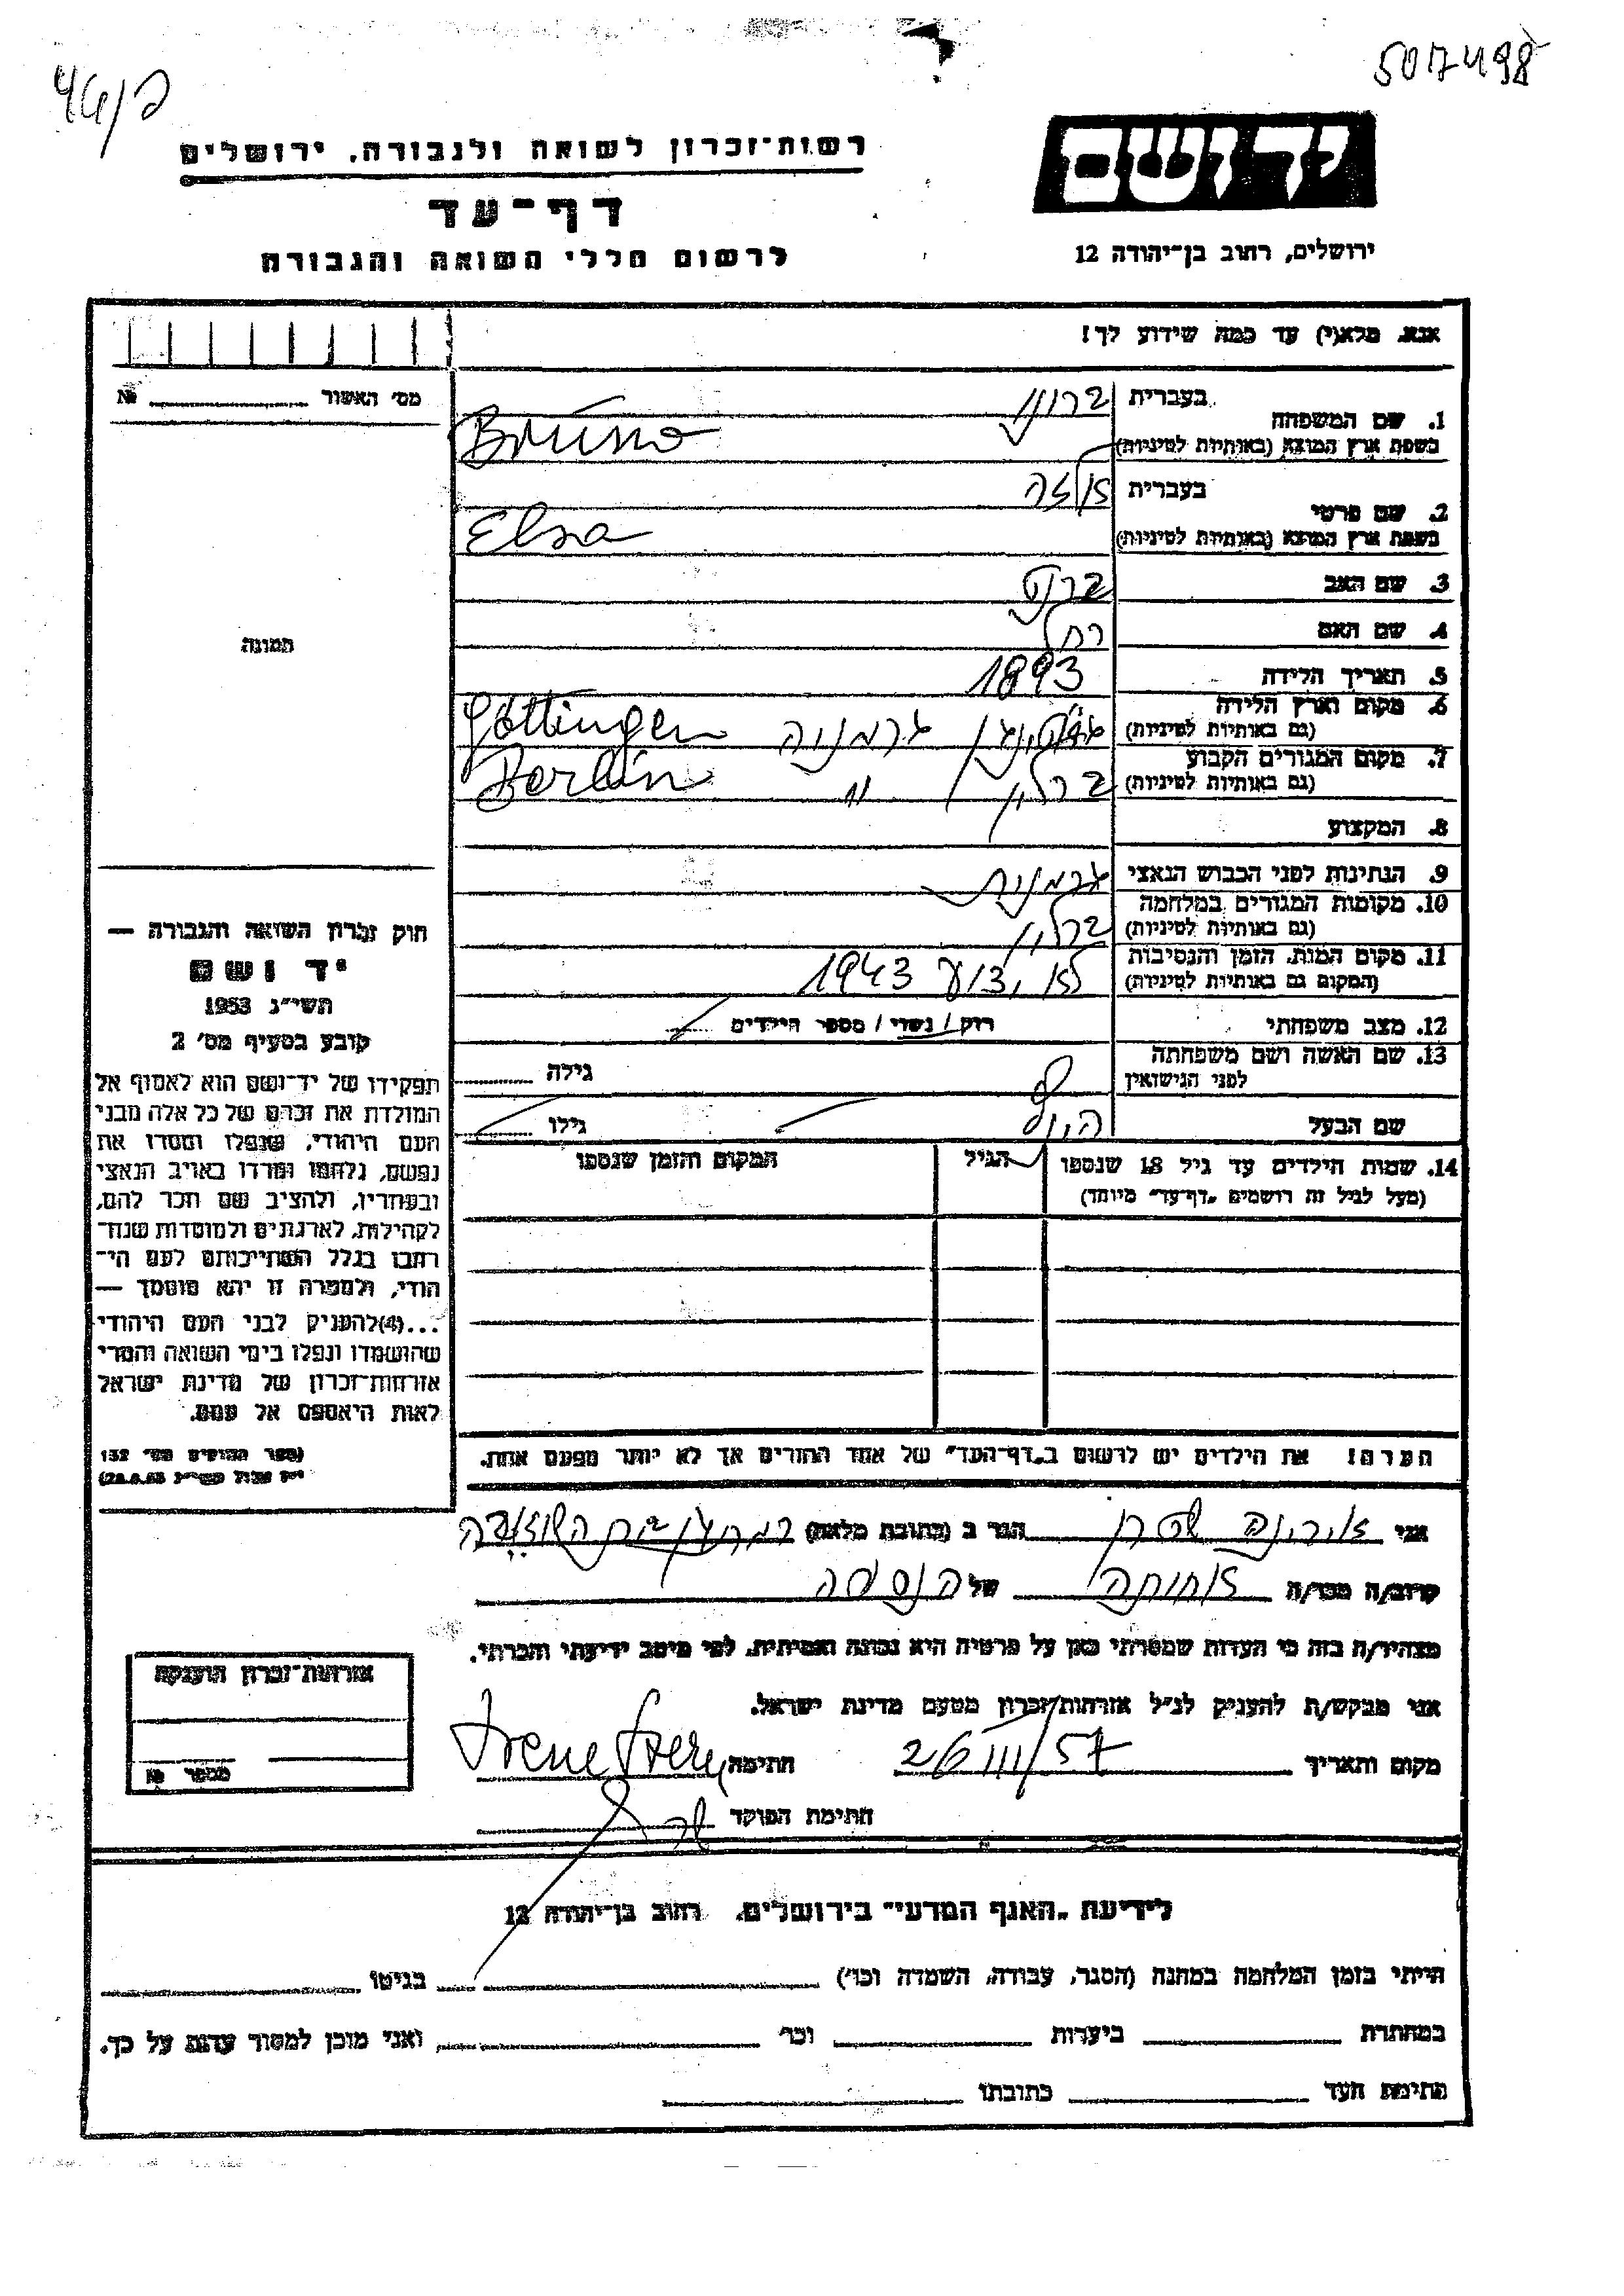 5017498
44/ב
יד ושם
רשות־זכרון לשואה ולגבורה, ירושלים
דף־עד
ירושלים, רחוב בן־יהודה 12
לרשום חללי השואה והגבורה
אנא, מלא(י) עד כמה שידוע לך!
מס׳ האשור № 
1. שם המשפחה בעברית ברונו
בשפת ארץ המוצא (באותיות לטיניות) Bruno
2. שם פרטי בעברית אלזה
בשפת ארץ המוצא (באותיות לטיניות) Elsa
3. שם האב
4. שם האם רחל
תמונה
5. תאריך הלידה 1893
6. מקום וארץ הלידה גרמניה Göttingen
(גם באותיות לטיניות)
7. מקום המגורים הקבוע ברלין " Berlin
(גם באותיות לטיניות)
8. המקצוע
9. הנתינות לפני הכבוש הנאצי גרמנית
10. מקומות המגורים במלחמה ברלין
(גם באותיות לטיניות)
11. מקום המות, הזמן והנסיבות לא ידוע 1943
(המקום גם באותיות לטיניות)
12. מצב משפחתי רווק / נשוי / מספר הילדים
13. שם האשה ושם משפחתה גילה
לפני הנישואין
שם הבעל גילו
14. שמות הילדים עד גיל 18 שנספו הגיל המקום והזמן שנספו
(מעל לגיל זה רושמים „דף־עד” מיוחד)
חוק זכרון השואה והגבורה —
יד ושם
תשי״ג 1953
קובע בסעיף מס׳ 2
תפקידו של יד־ושם הוא לאסוף אל
המולדת את זכרם של כל אלה מבני
העם היהודי, שנפלו ומסרו את
נפשם, נלחמו ומרדו באויב הנאצי
ובעוזריו, ולהציב שם וזכר להם,
לקהילות, לארגונים ולמוסדות שנח־
רבו בגלל השתייכותם לעם הי־
הודי, ולמטרה זו יהא מוסמך —
...(4) להעניק לבני העם היהודי
שהושמדו ונפלו בימי השואה והמרי
אזרחות־זכרון של מדינת ישראל
לאות היאספם אל עמם.
(ספר החוקים מס׳ 132
הערה! את הילדים יש לרשום ב„דף־העד” של אחד ההורים אך לא יותר מפעם אחת.
אני הגר ב (כתובת מלאה)
קרוב/ה מכר/ה אחותה של הנספה
מצהיר/ה בזה כי העדות שמסרתי כאן על פרטיה היא נכונה ואמיתית, לפי מיטב ידיעתי והכרתי.
אני מבקש/ת להעניק לנ״ל אזרחות־זכרון מטעם מדינת ישראל.
מקום ותאריך 26/III/57 חתימה Irene
חתימת הפוקד
אזרחות־זכרון הוענקה
מספר №
לידיעת „האגף המדעי” בירושלים, רחוב בן־יהודה 12
הייתי בזמן המלחמה במחנה (הסגר, עבודה, השמדה וכו׳) בגיטו
במחתרת ביערות וכו׳ ואני מוכן למסור עדות על כך.
חתימת העד כתובתו